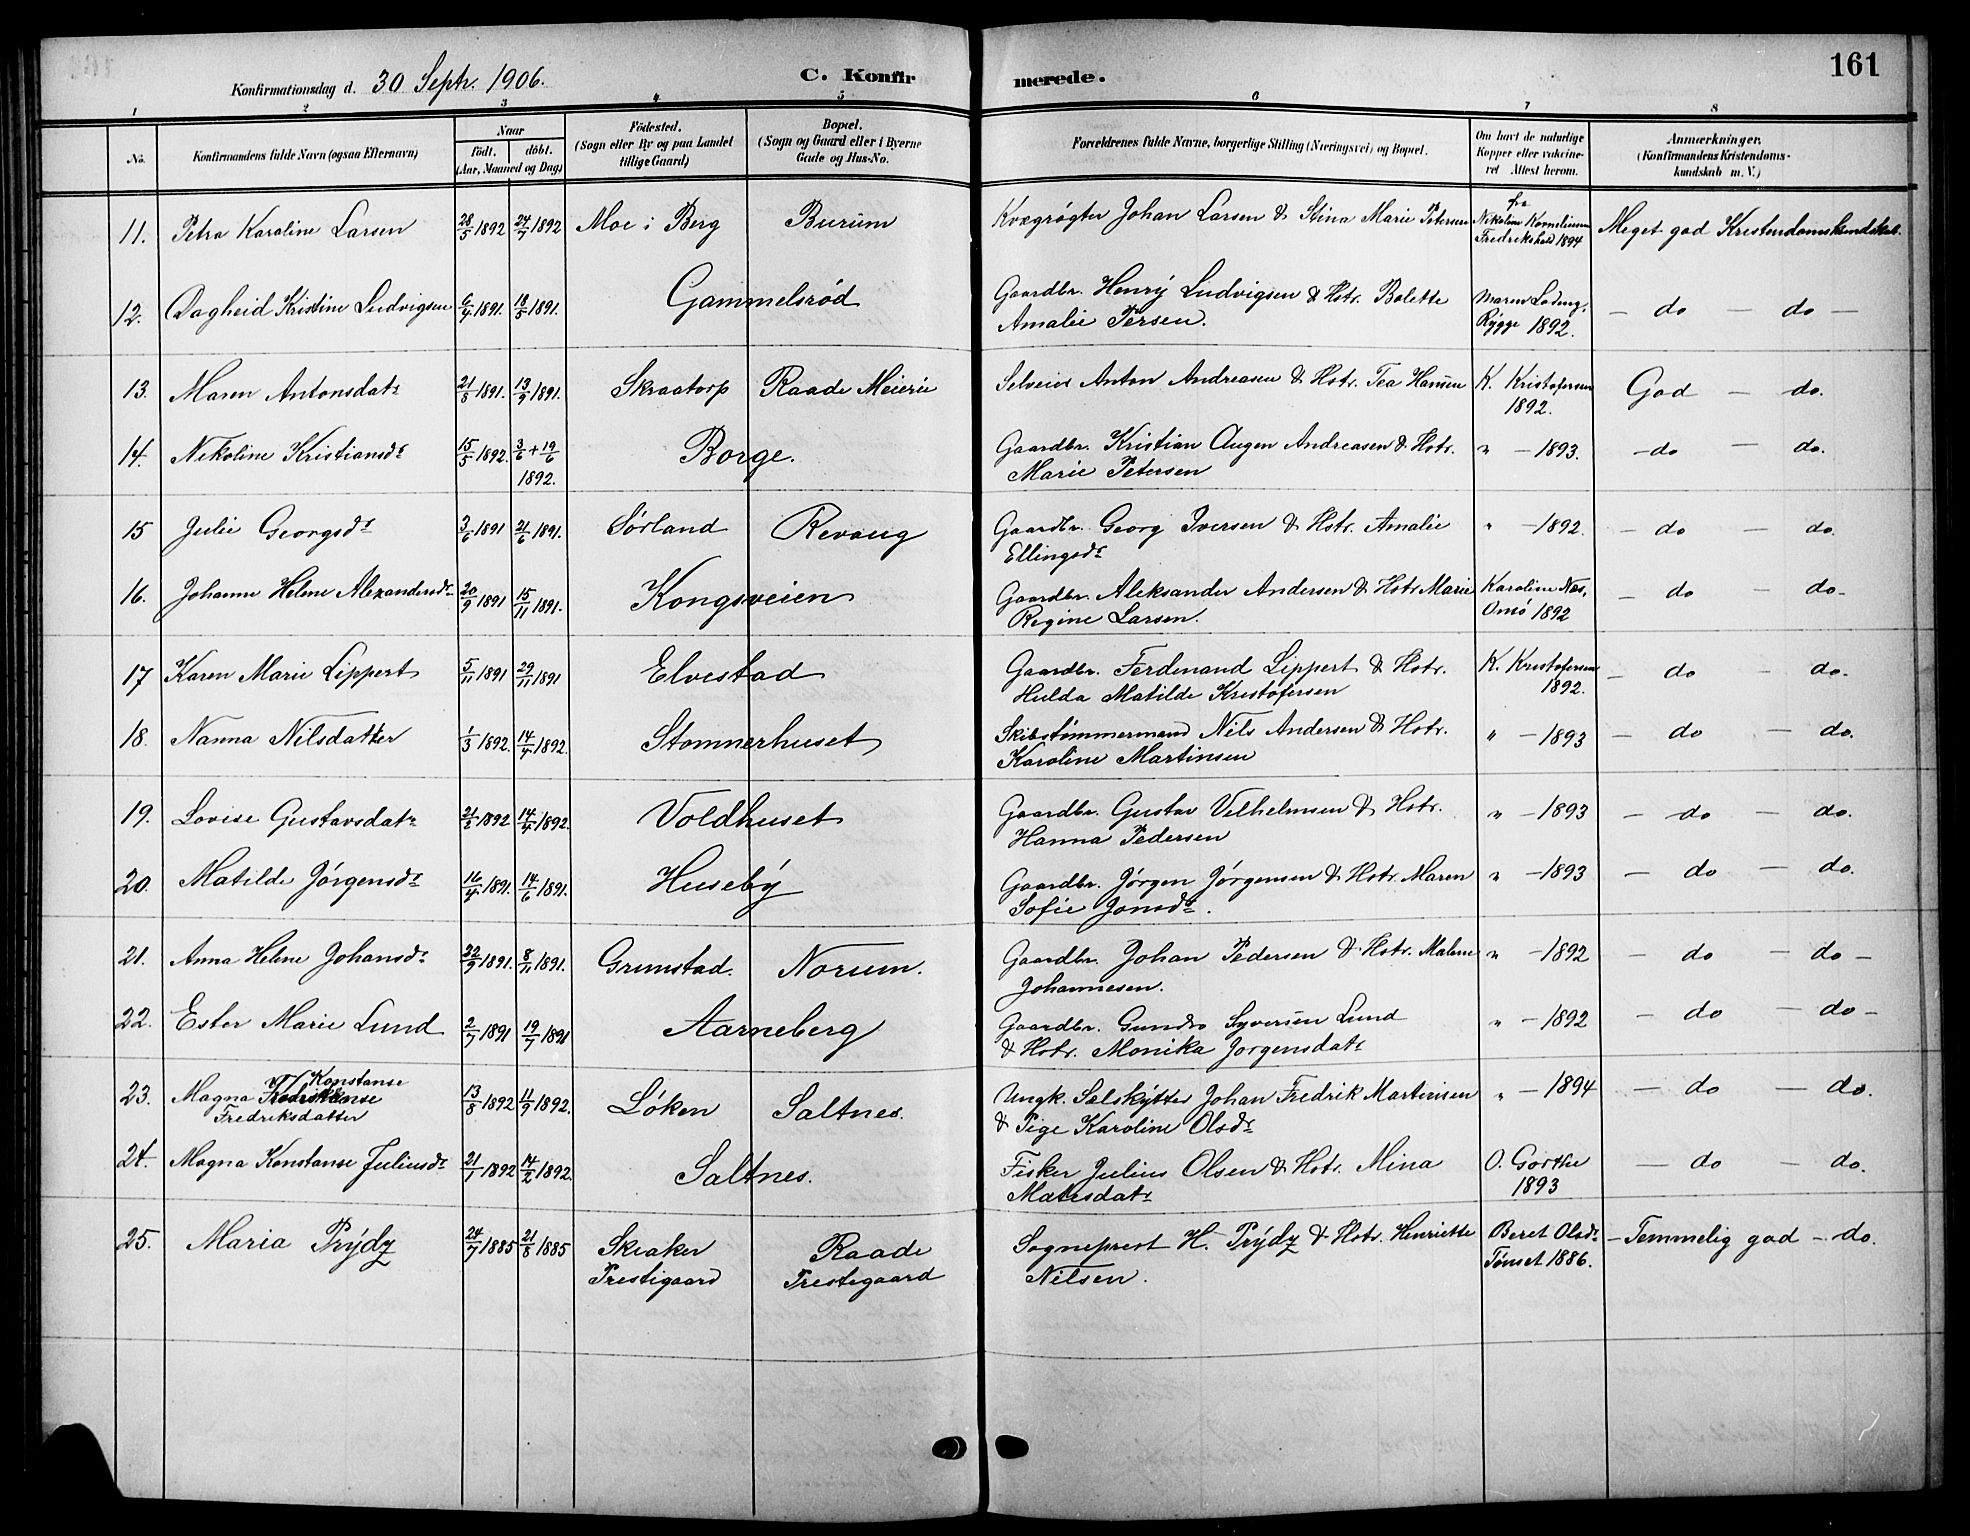 161
Konfirmationsdag d. 30 Septr. 1906. C. Konfirmerede.
1 2 3 4 5 6 7 8
No. Konfirmandens fulde Navn (ogsaa Efternavn) Naar født. døbt. (Aar, Maaned og Dag) Fødested. (Sogn eller By og paa Landet tillige Gaard) Bopæl. (Sogn og Gaard eller i Byerne Gade og Hus-No. Forældrenes fulde Navne, borgerlige Stilling (Næringsvei) og Bopæl. Om havt de naturlige Kopper eller vakcineret Attest herom. Anmærkninger. (Konfirmandens Kristendomskundskab m. V.)
11. Petra Karoline Larsen 28/5 1892 24/7 1892 Moe i Berg Burum Kvægrøgter Johan Larsen & Stina Marie Petersen fra Nikoline Korneliusen Fredrikshald 1894 Meget god Kristendomskundskab.
12. Dagheid Kristine Ludvigsen 6/4 1891. 18/5 1891. Gammelsrød Gaardbr. Henry Ludvigsen & Hstr. Bolette
Amalie Persen. Maren Lading, Rygge 1892. — do — do —
13. Maren Antonsdatr 21/8 1891. 13/9 1891. Skraatorp Raade Meierie Selveier Anton Andreasen & Hstr. Tea Hansen K. Kristofersen 1892. God — do.
14. Nikoline Kristiansdr 15/5 1892. 3/6 + 19/6 1892. Borge. Gaardbr. Kristian Augen Andreasen & Hstr.
Marie Petersen " — 1893. — do — do.
15 Julie Georgsdr 3/6 1891 21/6 1891. Sørland Revaug Gaardbr. Georg Iversen & Hstr. Amalie
Ellingsdr " — 1892. — do — do.
16. Johanne Helene Alexandersdr 20/9 1891 15/11 1891. Kongsveien Gaardbr. Aleksander Andersen & Hstr Marie
Regine Larsen. Karoline Næs, Onsø 1892 — do — do —
17 Karen Marie Lippert 5/11 1891 29/11 1891 Elvestad Gaardbr. Ferdinand Lippert & Hstr.
Hulda Matilde Kristofersen K. Kristofersen 1892. — do — do.
18. Nanna Nilsdatter 1/3 1892. 14/4 1892. Stomnerhuset Skibstømmermand Nils Andersen & Hstr.
Karoline Martinsen " — 1893 — do — do.
19. Lovise Gustavsdatr 21/2 1892 14/4 1892. Voldhuset Gaardbr. Gustav Vilhelmsen & Hstr.
Hanna Pedersen " — 1893 — do — do.
20. Matilde Jörgensdr 16/4 1891. 14/6 1891. Huseby Gaardbr. Jörgen Jörgensen & Hstr. Maren
Sofie Jonsdr. " — 1893 — do — do.
21. Anna Helene Johansdr 22/9 1891. 8/11 1891. Grimstad. Norum. Gaardbr. Johan Pedersen & Hstr. Malene
Johannesen. " — 1892 — do — do —
22. Ester Marie Lund 2/7 1891 19/7 1891 Aarneberg Gaardbr. Gundro Syversen Lund
& Hstr. Monika Jorgensdatr " — 1892 — do — do —
23. Magna Konstanse
Fredriksdatter 13/8 1892 11/9 1892. Løken Saltnes. Ungk. Sælskytter Johan Fredrik Martinsen
& Pige Karoline Olsdr " — 1894 — do — do.
24. Magna Konstanse Juliusdr 21/1 1892 14/2 1892. Saltnes. Fisker Julius Olsen & Hstr. Mina
Matisdatr O. Gorthe 1893 — do — do.
25. Maria Prydz 24/7 1885 21/8 1885 Skiaker Prestigaard Raade Prestegaard Sogneprest H. Prydz & Hstr. Henriette
Nilsen. Beret Olsdr Tønset 1886. — Temmelig god — do.